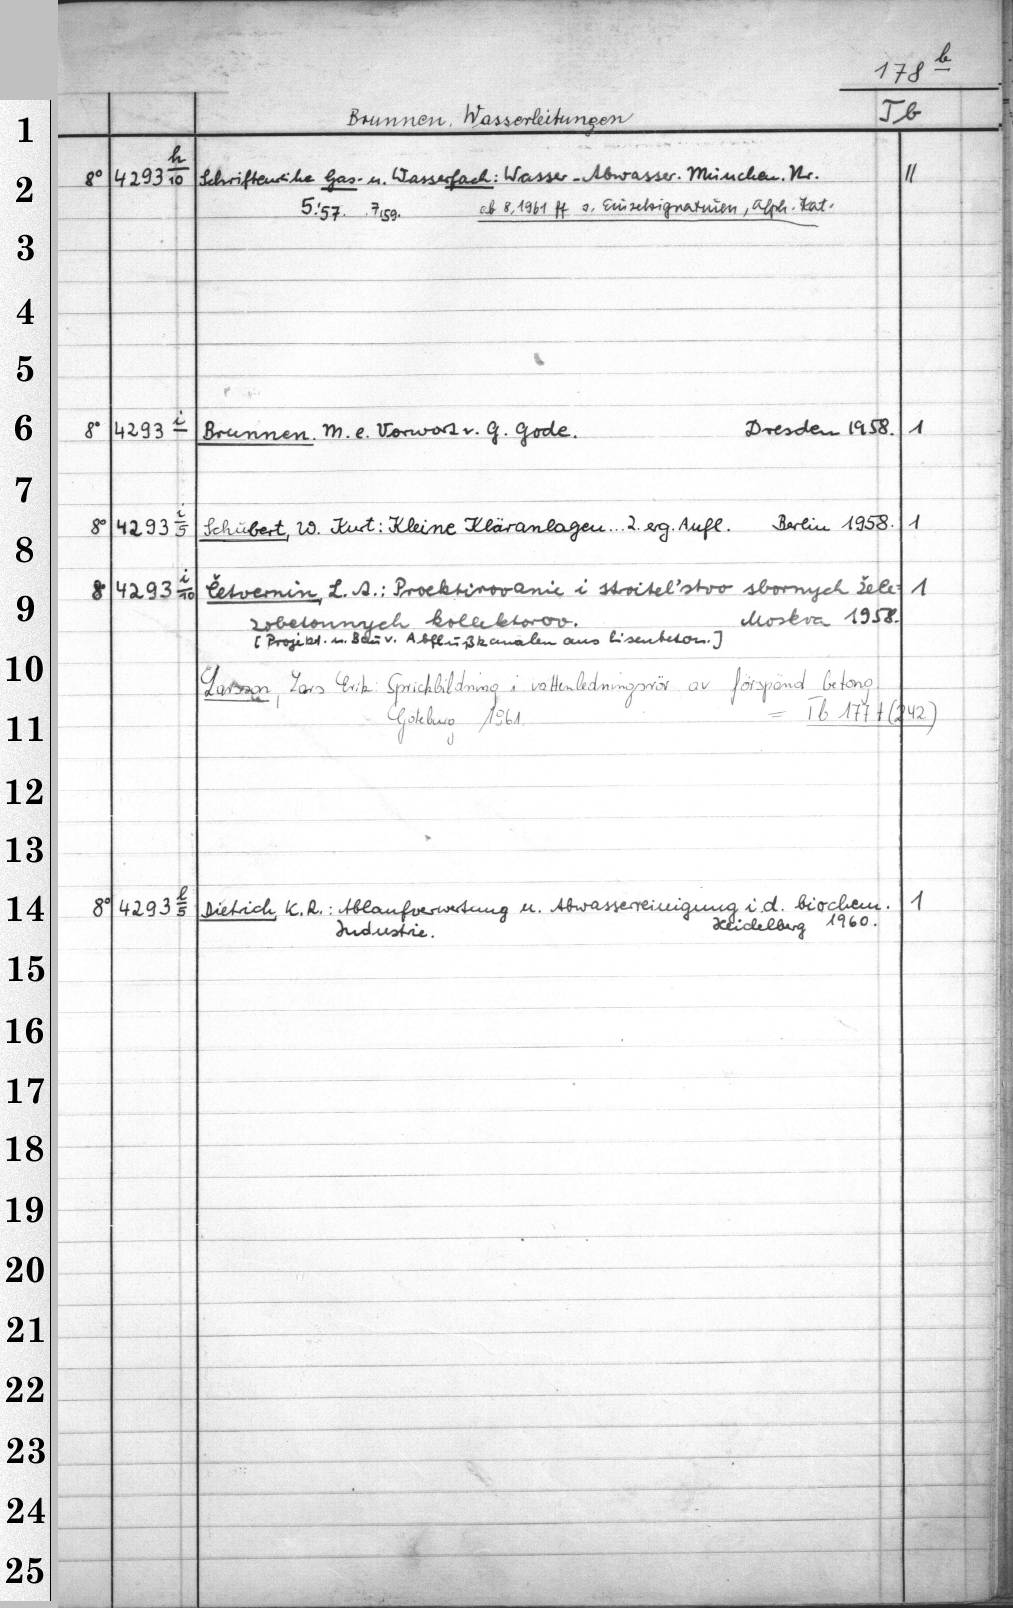 178 b
Brunnen, Wasserleitungen Tb
1
2 8° 4293 h/10 Schriftenreihe Gas- u. Wasserfach: Wasser-Abwasser. München. Nr. II
5.'57. 7,59. ab 8,1961 ff s. Einzelsignaturen, Alph. Kat.
3
4
5
6 8° 4293 i Brunnen. M. e. Vorwort v. G. Gode. Dresden 1958. 1
7
8° 4293 i/5 Schubert, W. Kurt: Kleine Kläranlagen... 2. erg. Aufl. Berlin 1958. 1
8
9 8° 4293 i/10 Četvernin, L. A.: Proektirovanie i stroitel'stvo sbornych žele- 1
zobetonnych kollektorov. Moskva 1958.
[Projekt. u. Bau v. Abflußkanälen aus Eisenbeton.]
10 Larsson, Lars Erik: Sprickbildning i vattenledningsrör av förspänd betong
11 Göteborg 1961. = Tb 177 t (242)
12
13
14 8° 4293 k/5 Dietrich, K. R.: Ablaufverwertung u. Abwasserreinigung i. d. biochem. 1
Industrie. Heidelberg 1960.
15
16
17
18
19
20
21
22
23
24
25